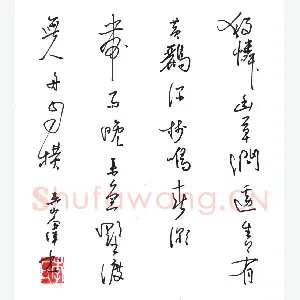 独憐幽草澗邊生上有
黃鸝深樹鳴春潮
帶雨晚來急野渡
無人舟自橫
Shufawang.CN